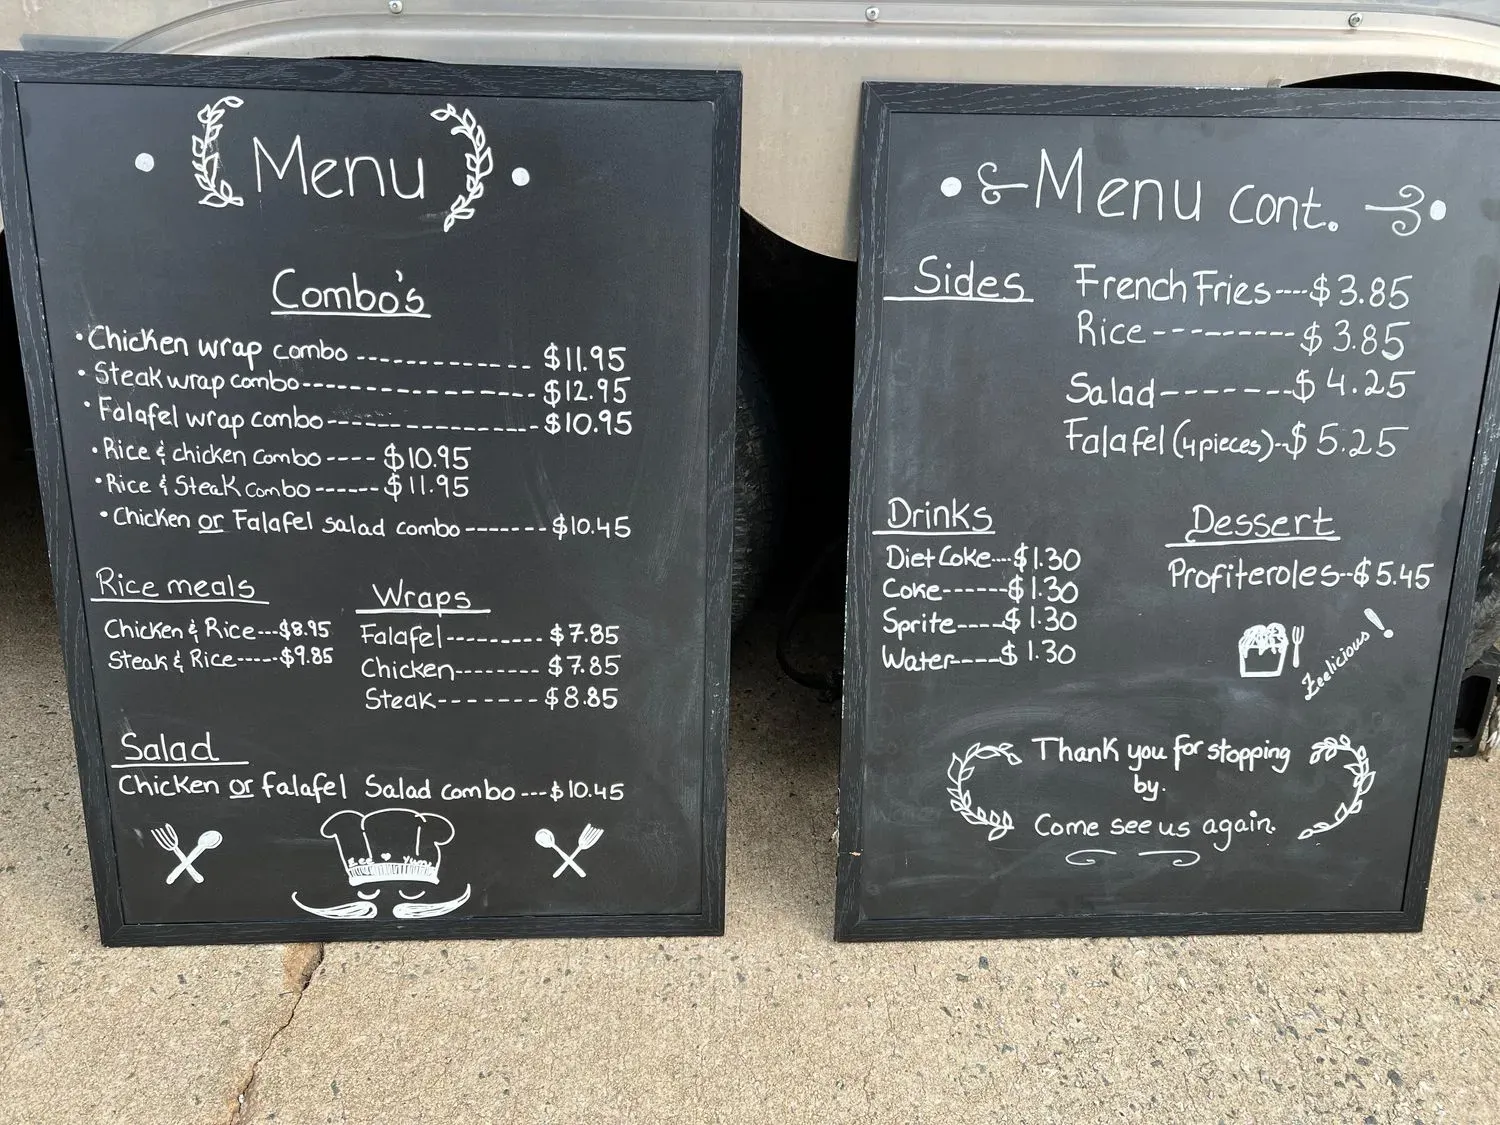 Menu
Combo's
• Chicken wrap combo ------------ $11.95
• Steak wrap combo---------------- $12.95
• Falafel wrap combo--------------- $10.95
• Rice & chicken combo ---- $10.95
• Rice & Steak combo ------ $11.95
• Chicken or Falafel salad combo ------- $10.45
Rice meals
Chicken & Rice---$8.95
Steak & Rice-----$9.85
Wraps
Falafel--------- $7.85
Chicken-------- $7.85
Steak------- $8.85
Salad
Chicken or falafel Salad combo ---$10.45
Zee Yum
Menu cont.
Sides
French Fries----$3.85
Rice ----------$3.85
Salad-------$4.25
Falafel (4 pieces)--$5.25
Drinks
Diet Coke---$1.30
Coke------$1.30
Sprite----$1.30
Water----$1.30
Dessert
Profiteroles--$5.45
Zeelicious!
Thank you for stopping
by.
Come see us again.